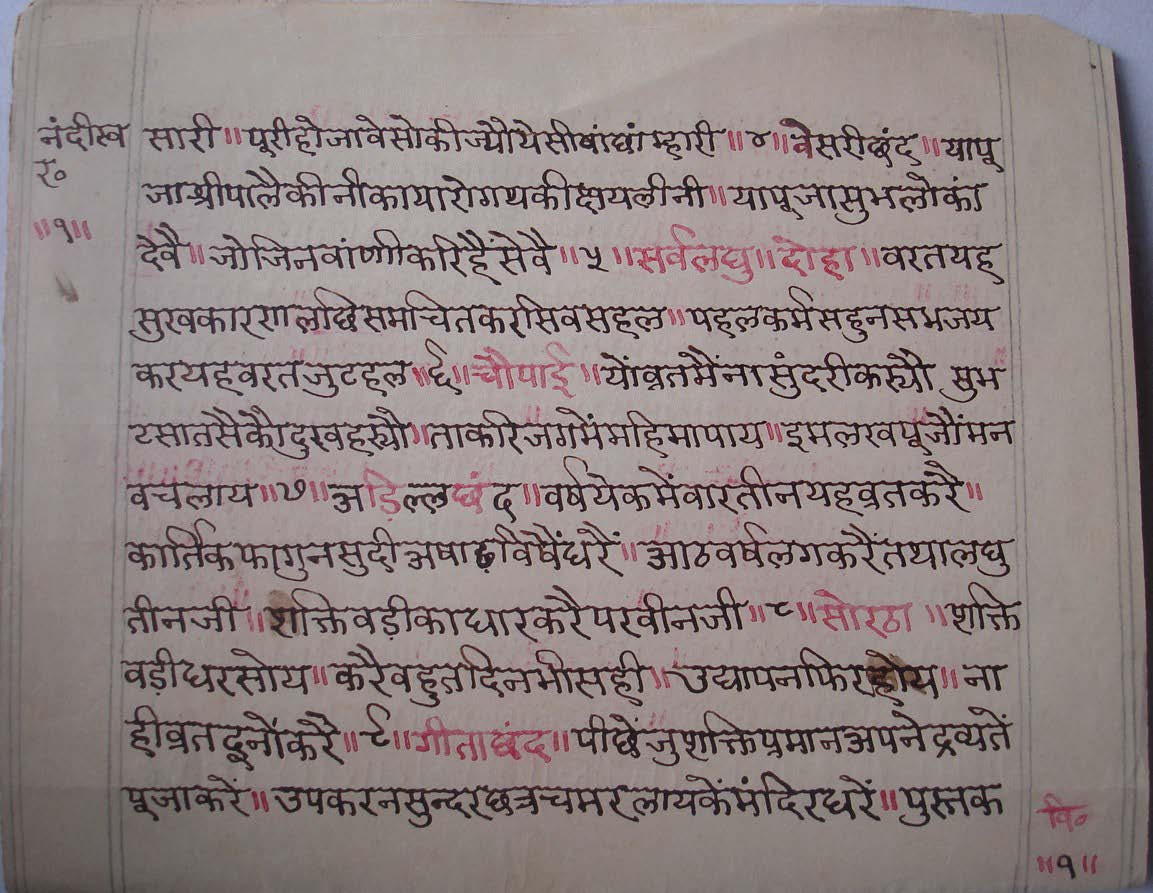 नंदीस्व
र०
॥१॥
सारी॥पूरीहोजावेसोकीज्यौयैसीबांघांम्हारी॥४॥वेसरीछंद॥यापू
जाश्रीपालैकीनीकायारोगथकीक्षयलीनी॥यापूजासुभलोकां
देवै॥जोजिनवांणीकरिहैंसेवै॥५॥सर्वलघु॥दोहा॥वरतयह
सुखकारणलछिसमचितकरसिवसहल॥पहलकर्मसहुनसभजय
करयहवरतजुटहल॥६॥चौपाई॥योंव्रतमैंनासुंदरीकस्यौ सुभ
टसातसैकौदुखहस्यौ॥ताकरिजगमेंमहिमापाय॥इमलखपूजौंमन
वचलाय॥७॥अडिल्लछंद॥वर्षयेकमेंवारतीनयहव्रतकरै॥
कार्तिकफागुनसुदीअषाढविषैंधरैं॥आठवर्षलगकरैंतथालघु
तीनजी॥शक्तिवड़ीकाधारकरैपरवीनजी॥८॥सोरठा॥शक्ति
वड़ीधरसोय॥करैवहुतदिनभीसही॥उद्यापनफिरहोय॥ना
हीव्रतदूनौंकरै॥९॥गीताछंद॥पीछैंजुशक्तिप्रमानअपनेद्रव्यतें
पूजाकरें॥उपकरनसुन्दरछत्रचमरलायकेंमंदिरधरें॥पुस्तक
वि०
॥१॥